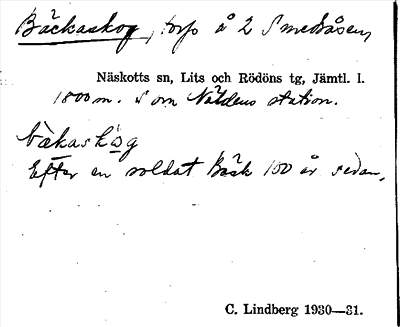 Bäckaskog, torp å 2 Smedsåsen,
Näskotts sn, Lits och Rödöns tg, Jämtl. l.
1800 m. S om Näldens station.
bäkaskòg
Efter en soldat Bäck 100 år sedan.
C. Lindberg 1930—31.